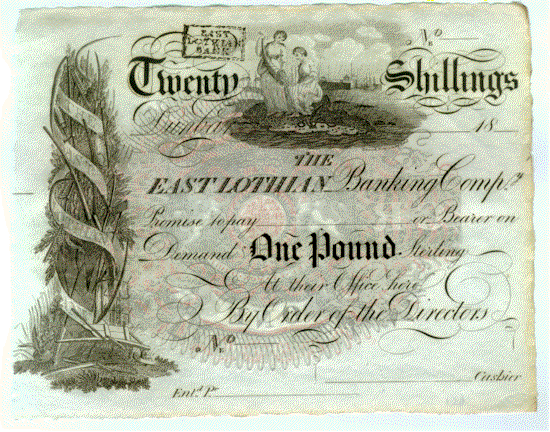 EAST
LOTHIAN
BANK
No
Twenty Shillings
Dunbar 18
THE
EAST LOTHIAN Banking Compy.
Promise to pay or Bearer on
Demand One Pound Sterling
At their Office here
By Order of the Directors
No
Cashier
Entd. Pr.